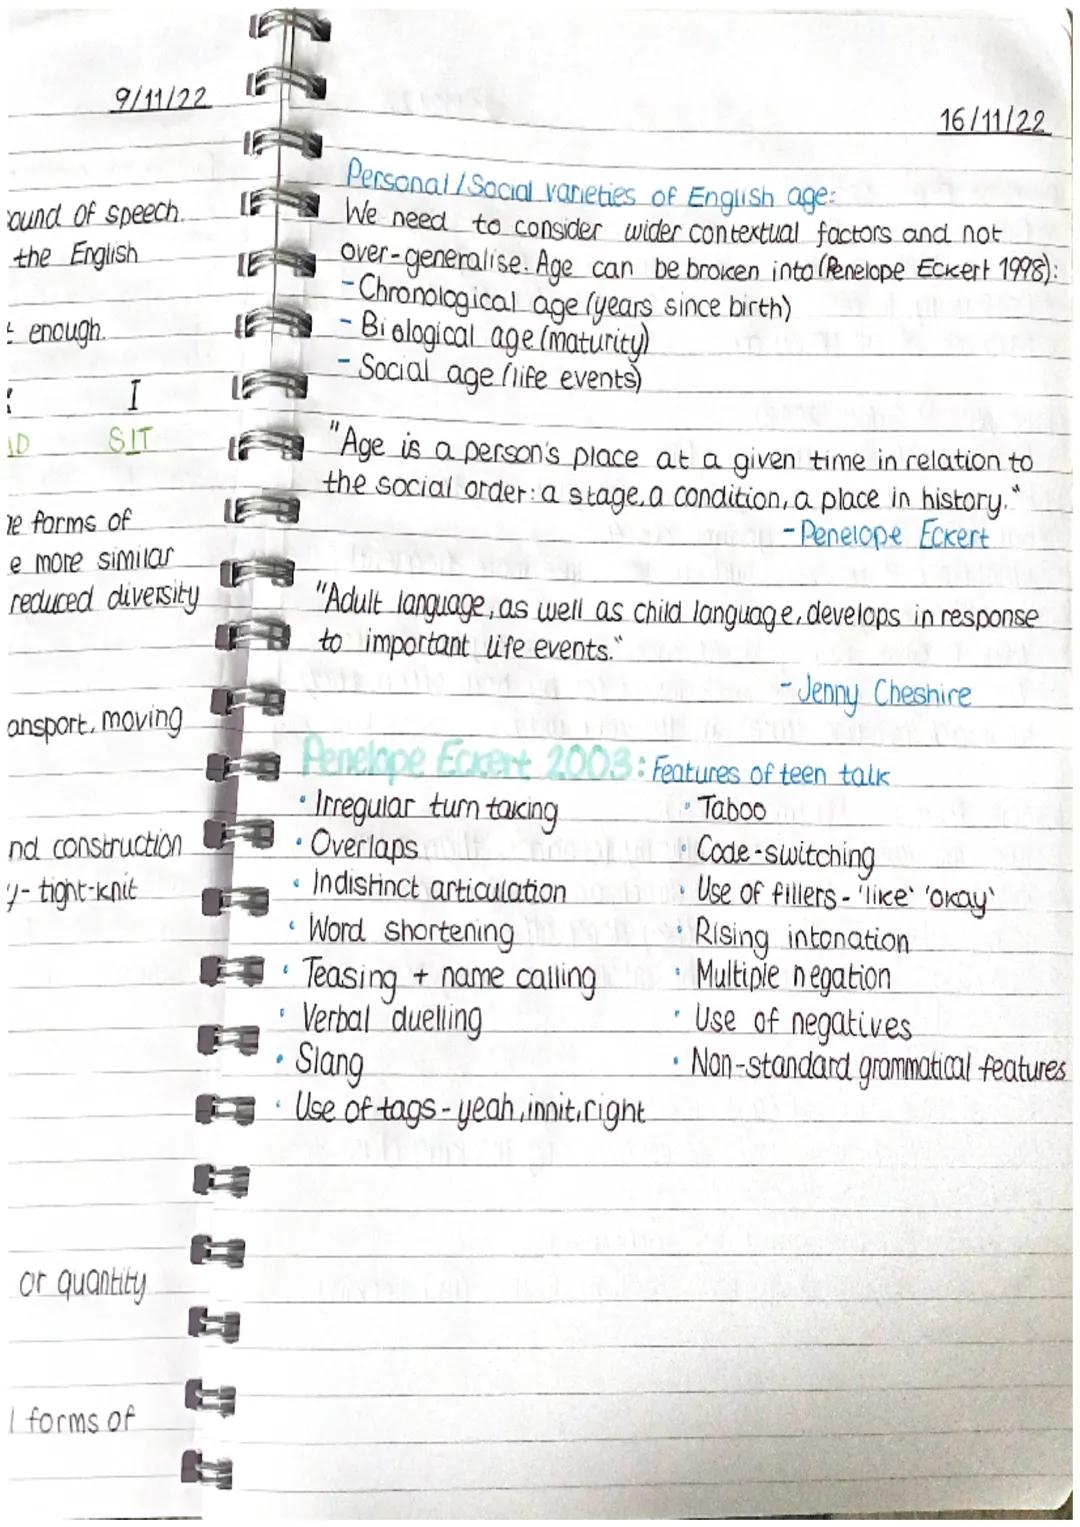 9/11/22
ound of speech.
the English
enough.
I
SIT
forms of
e more similar
reduced diversity
ansport, moving
nd construction
y- tight-knit
or quantity
forms of
16/11/22
Personal/Social varieties of English age:
We need to consider wider contextual factors and not
over-generalise. Age can be broken into (Penelope Eckert 1998):
- Chronological age (years since birth)
- Biological age (maturity)
- Social age (life events)
"Age is a person's place at a given time in relation to
the social order: a stage, a condition, a place in history."
- Penelope Eckert
"Adult language, as well as child language, develops in response
to important life events."
- Jenny Cheshire
Penelope Eckert 2003: Features of teen talk
• Irregular turn taking
• Overlaps
• Indistinct articulation
• Word shortening
• Teasing + name calling
• Verbal duelling
• Slang
• Use of tags - yeah, innit, right
• Taboo
• Code-switching
• Use of fillers - 'like' 'okay'
• Rising intonation
• Multiple negation
• Use of negatives
• Non-standard grammatical features